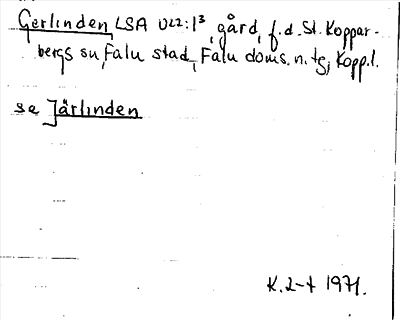 Gerlinden, LSA U22:1³, gård, f.d. St. Koppar-
bergs sn, Falu stad, Falu doms. n. tg, Kopp.l.
se Järlinden
K. 2-t 1971.